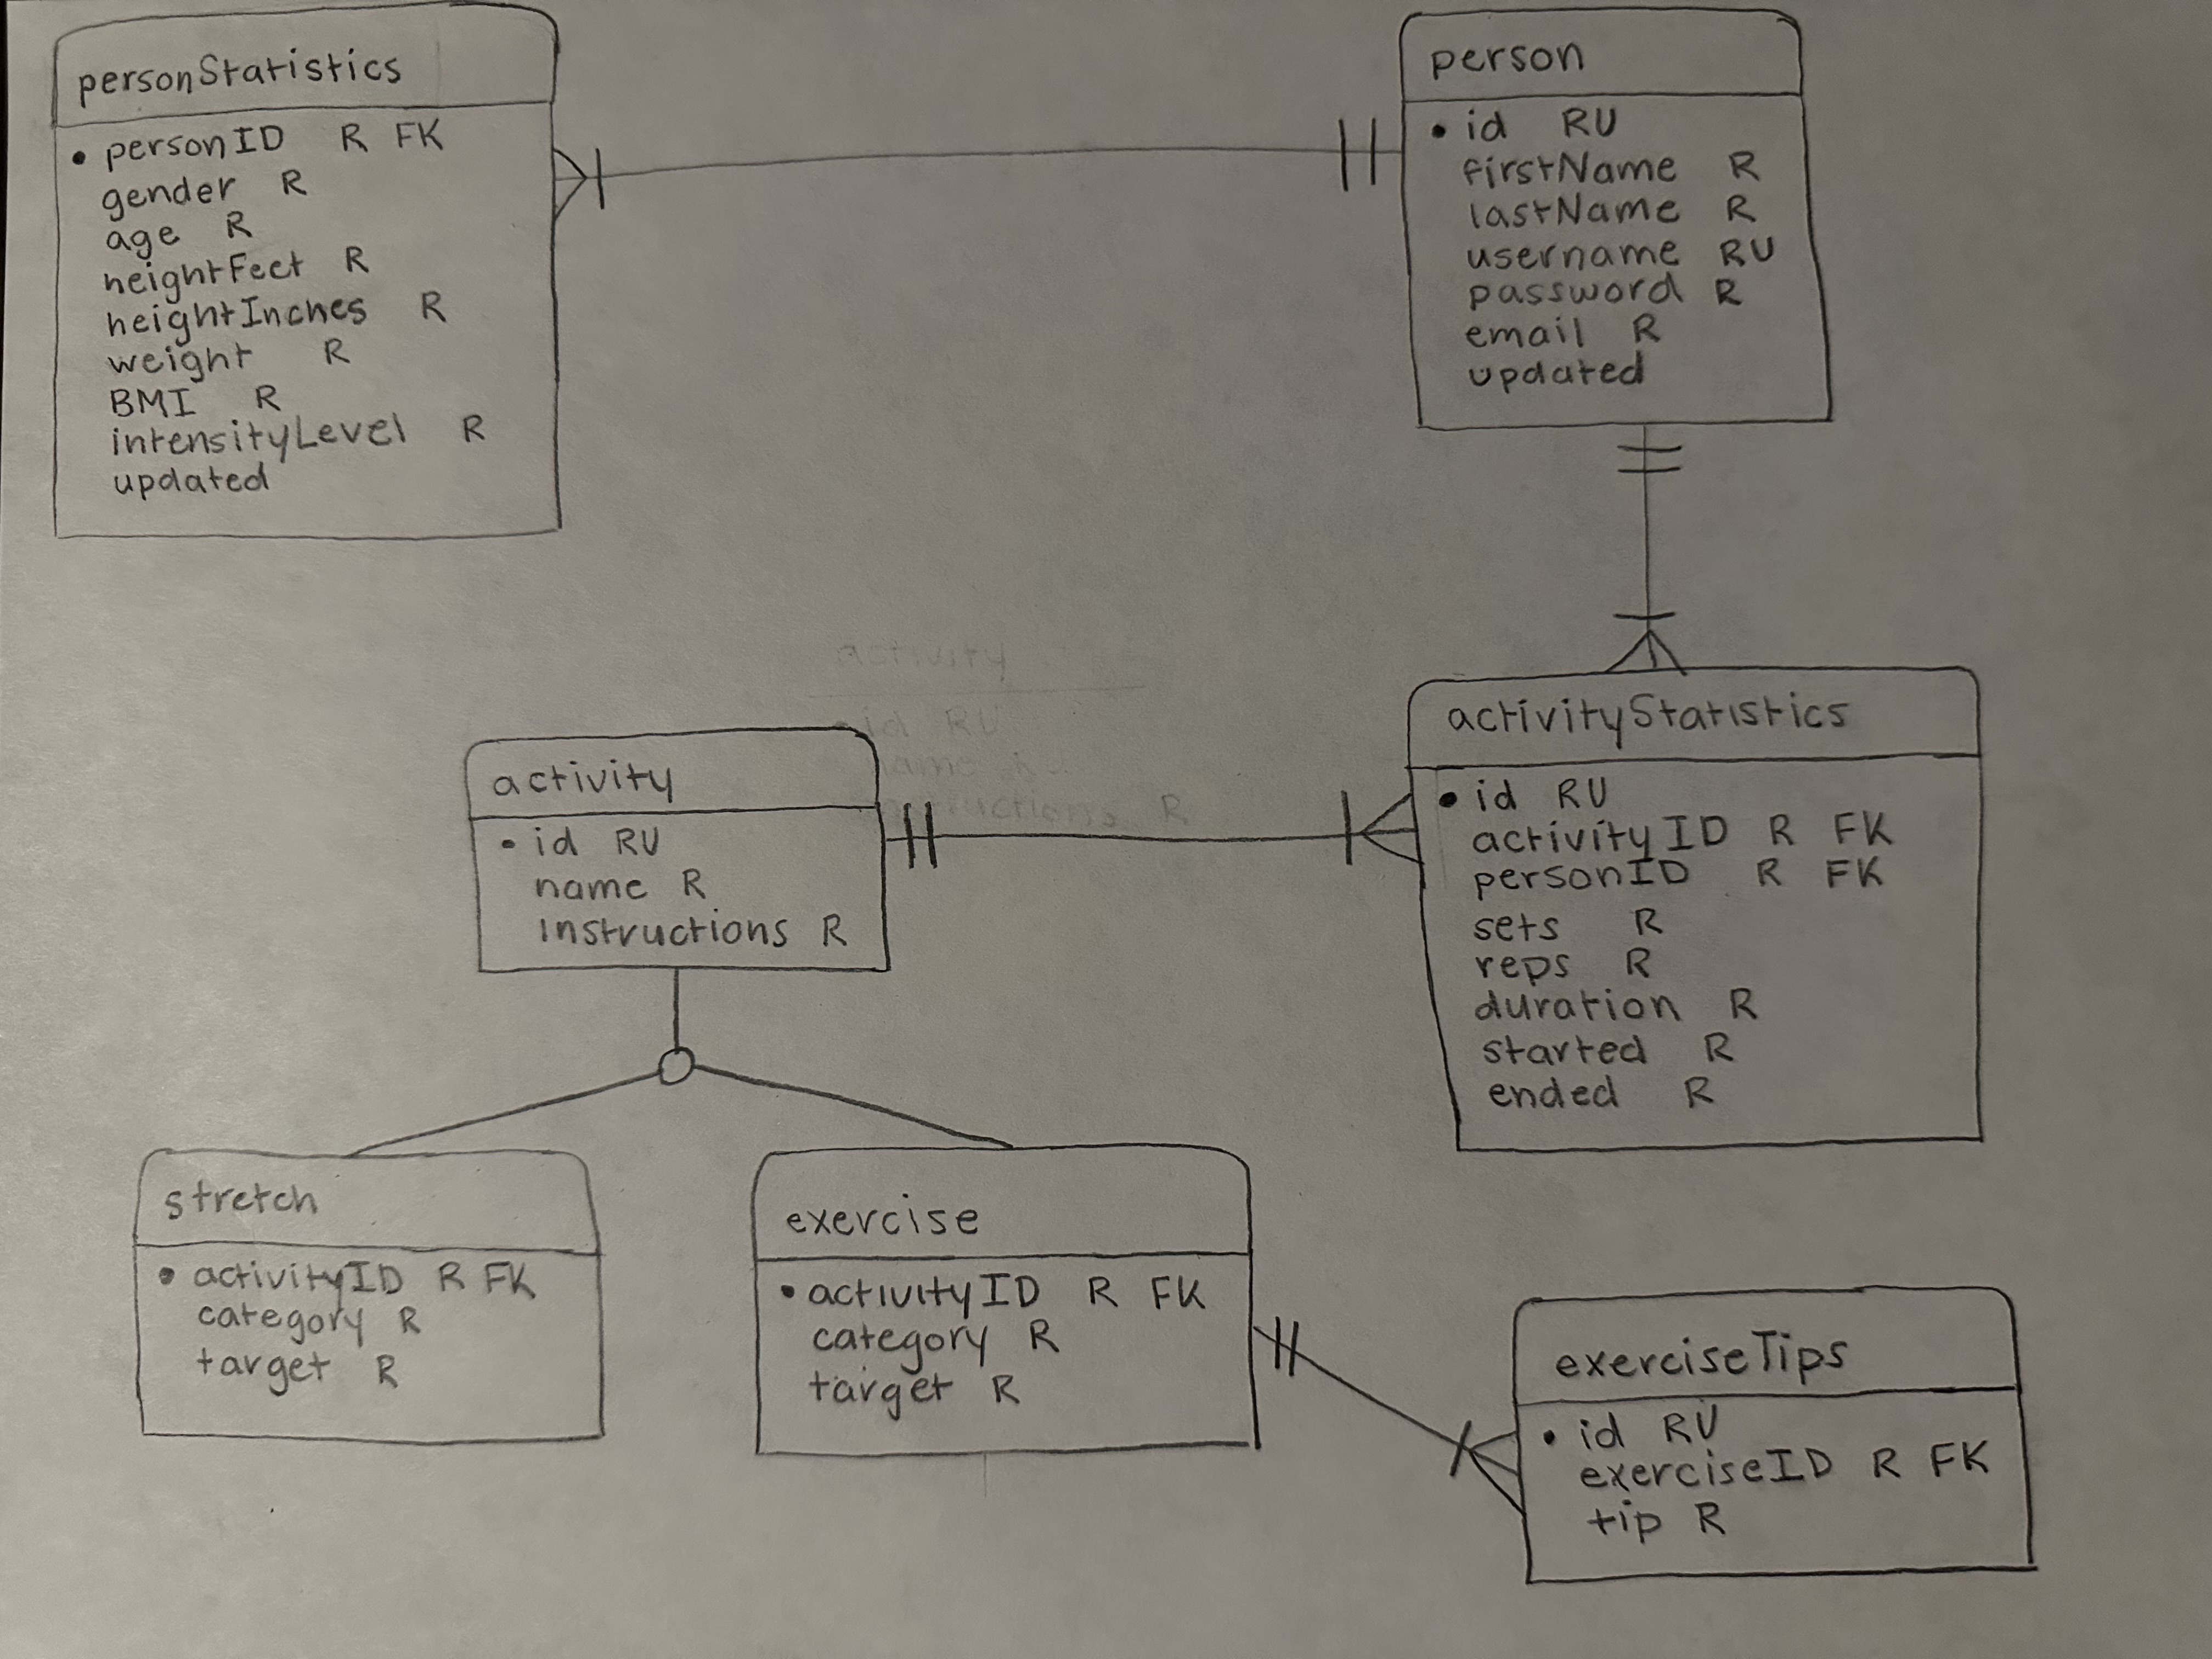 personStatistics
• personID R FK
gender R
age R
heightFeet R
heightInches R
weight R
BMI R
intensityLevel R
updated
person
• id RU
firstName R
lastName R
username RU
password R
email R
updated
activity
• id RU
name
instructions R
activity
• id RU
name R
Instructions R
activityStatistics
• id RU
activityID R FK
personID R FK
sets R
reps R
duration R
started R
ended R
stretch
• activityID R FK
category R
target R
exercise
• activityID R FK
category R
target R
exerciseTips
• id RU
exerciseID R FK
tip R